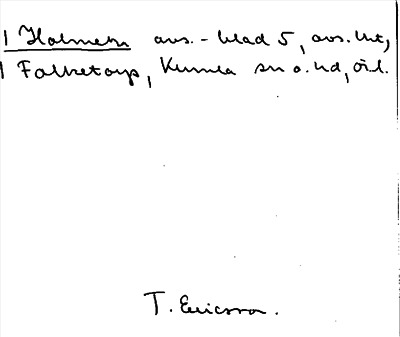 1 Holmen avs.-blad 5, avs. lnt,
1 Falketorp, Kumla sn o. hd, ör l.
T. Ericsson.